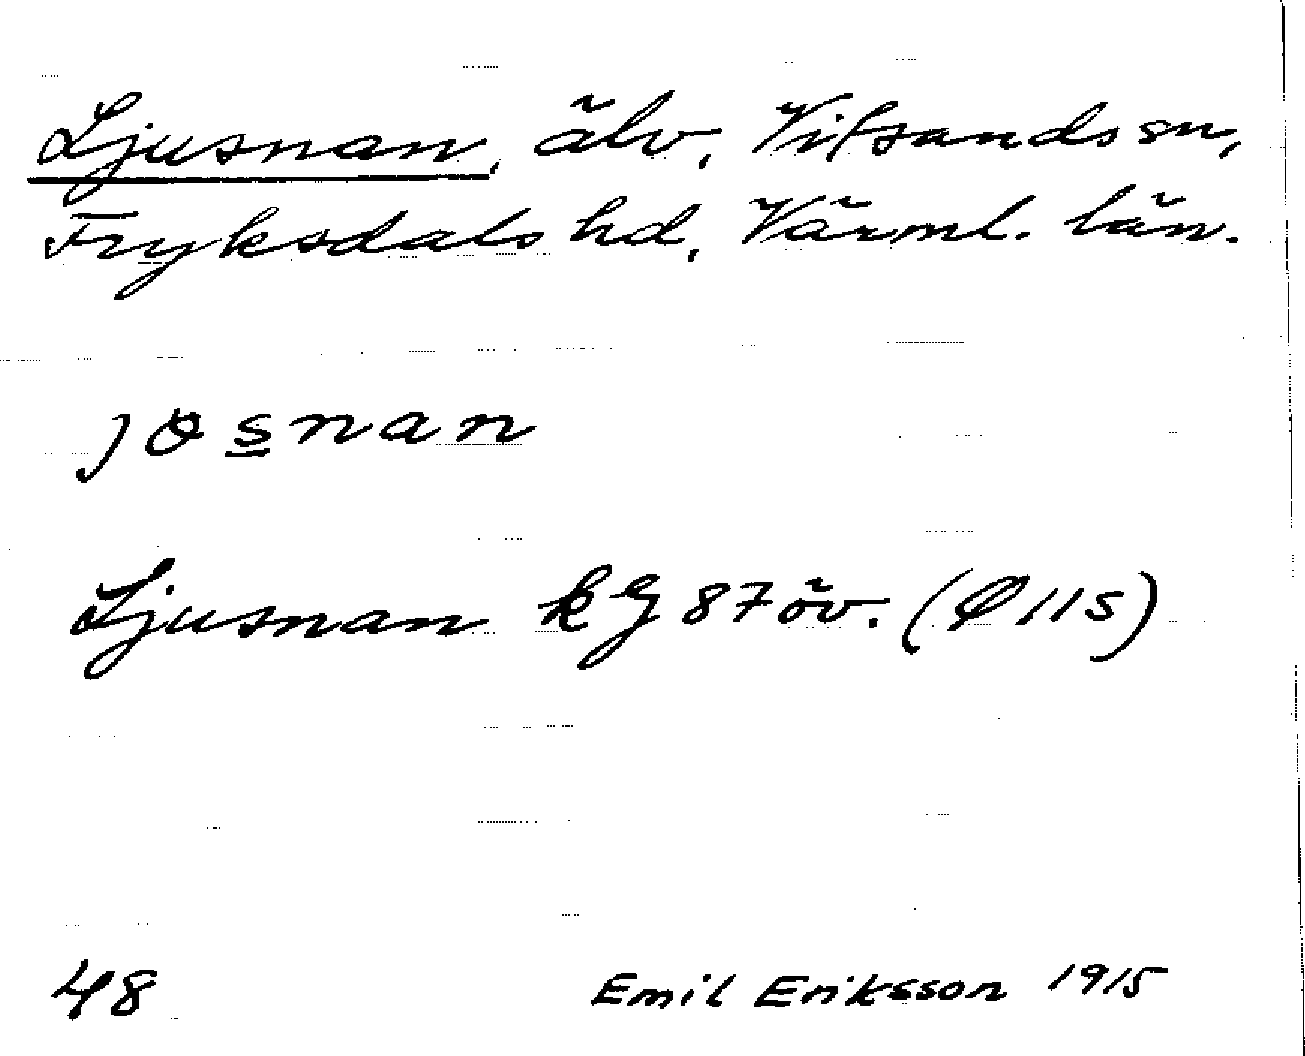 Ljusnan, älv, Vitsands sn,
Fryksdals hd, Värml. län.
jɵs̲nan
Ljusnan kg 87 öv. (Ø 11 s)
48
Emil Eriksson 1915